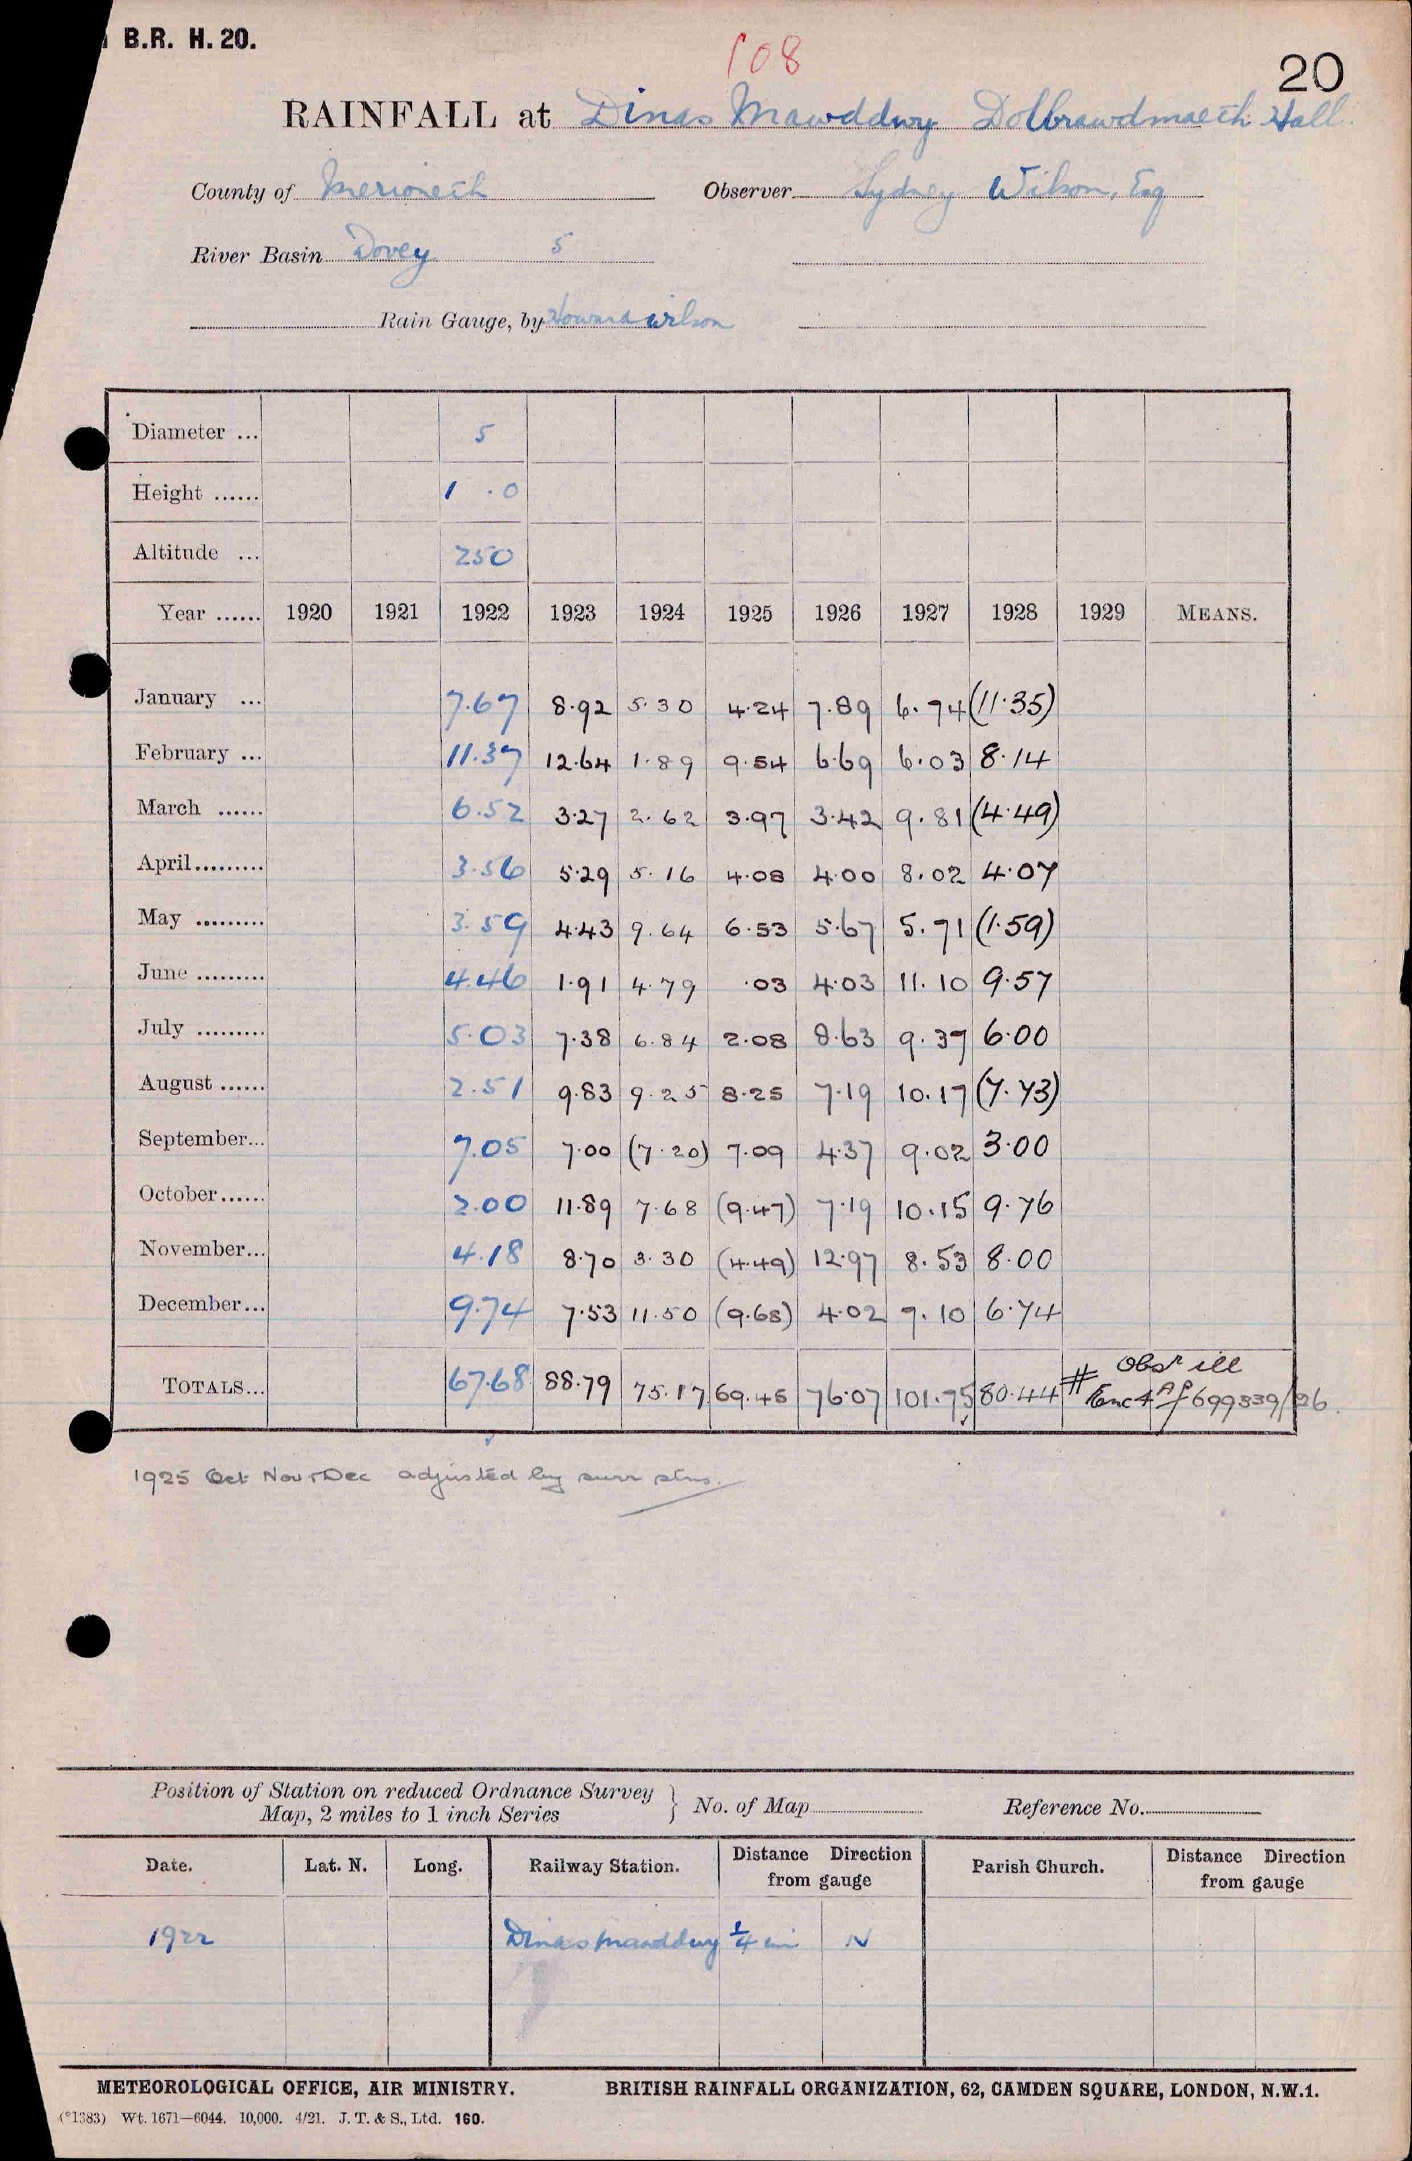 B.R. H. 20.
108
20
RAINFALL at Dinas Mawddwy Dolbrawdmaeth Hall.
County of Merioneth Observer Sydney Wilson, Esq
River Basin Dovey 5
Rain Gauge, by Howard Wilson
Diameter ... 5
Height ...... 1 . 0
Altitude ... 250
Year ...... 1920 1921 1922 1923 1924 1925 1926 1927 1928 1929 MEANS.
January ... 7.67 8.92 5.30 4.24 7.89 6.74 (11.35)
February ... 11.37 12.64 1.89 9.54 6.69 6.03 8.14
March ...... 6.52 3.27 2.62 3.97 3.42 9.81 (4.49)
April......... 3.56 5.29 5.16 4.08 4.00 8.02 4.07
May ......... 3.59 4.43 9.64 6.53 5.67 5.71 (1.59)
June ......... 4.46 1.91 4.79 .03 4.03 11.10 9.57
July ......... 5.03 7.38 6.84 2.08 8.63 9.37 6.00
August ...... 2.51 9.83 9.25 8.25 7.19 10.17 (7.73)
September... 7.05 7.00 (7.20) 7.09 4.37 9.02 3.00
October...... 2.00 11.89 7.68 (9.47) 7.19 10.15 9.76
November... 4.18 8.70 3.30 (4.49) 12.97 8.53 8.00
December... 9.74 7.53 11.50 (9.68) 4.02 7.10 6.74
TOTALS... 67.68 88.79 75.17 69.45 76.07 101.75 80.44 # Obsr ill
Enc 4 AP/699339/26
1925 Oct Nov + Dec adjusted by surr stns.
Position of Station on reduced Ordnance Survey
Map, 2 miles to 1 inch Series } No. of Map Reference No.
Date. Lat. N. Long. Railway Station. Distance Direction from gauge Parish Church. Distance Direction from gauge
1922 Dinas Mawddwy 1/4 mi N
METEOROLOGICAL OFFICE, AIR MINISTRY. BRITISH RAINFALL ORGANIZATION, 62, CAMDEN SQUARE, LONDON, N.W.1.
(*1383) Wt. 1671—6044. 10,000. 4/21. J. T. & S., Ltd. 160.